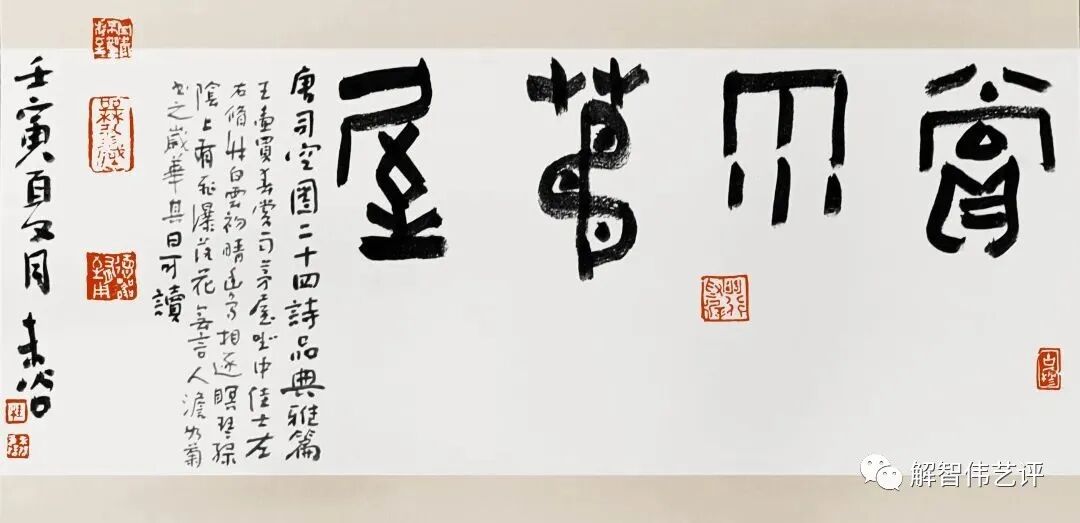 賞雨茅屋
唐司空圖二十四詩品典雅篇
玉壺買春賞雨茅屋坐中佳士左
右脩竹白雲初晴幽鳥相逐瞑琴綠
陰上有飛瀑落花無言人澹如菊
書之歲華其曰可讀
壬寅夏月
解智伟艺评